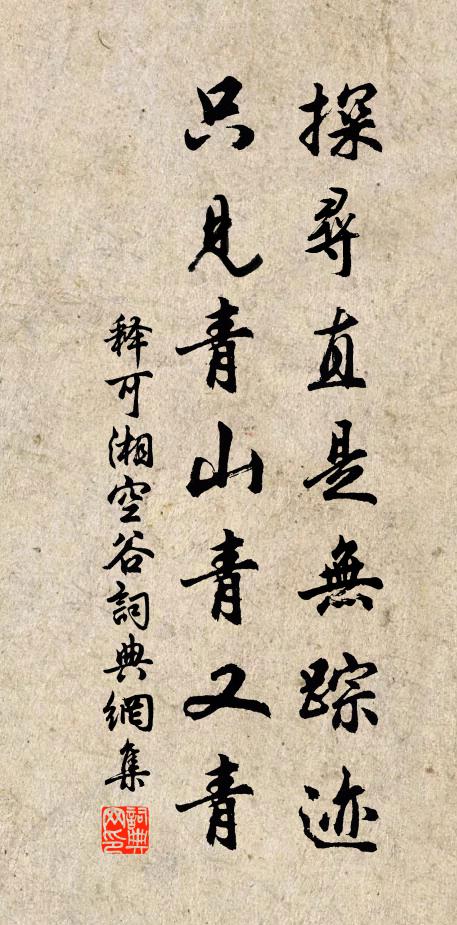 探尋直是無踪迹
只見青山青又青
释可湘空谷詞典網集
詞典網印